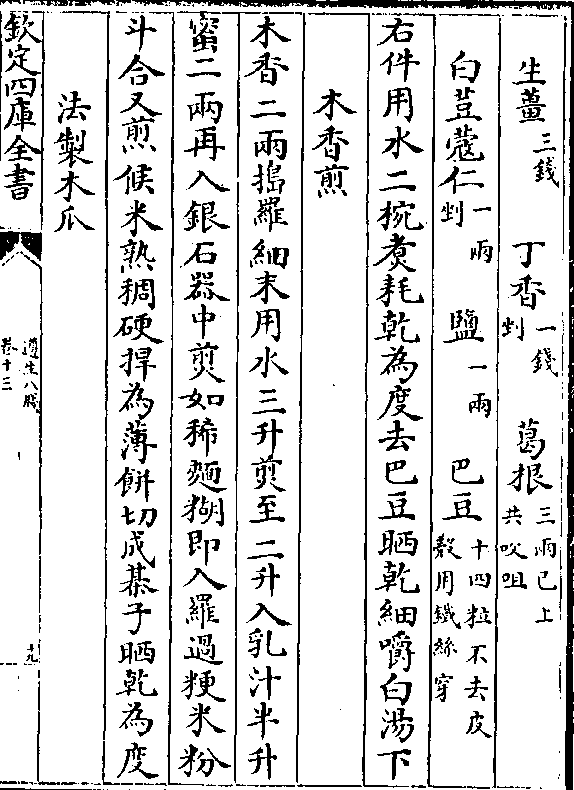 生薑三錢 丁香一錢剉 葛根三兩已上共㕮咀
白荳蔻仁一兩剉 鹽一兩 巴豆十四粒不去皮殼用鐵絲穿
右件用水二椀煑耗乾為度去巴豆晒乾細嚼白湯下
木香煎
木香二兩搗羅細末用水三升煎至二升入乳汁半升
蜜二兩再入銀石器中煎如稀麵糊即入羅過粳米粉
斗合又煎候米熟稠硬捍為薄餅切成棊子晒乾為度
法製木瓜
欽定四庫全書
遵生八牋
卷十三
十九